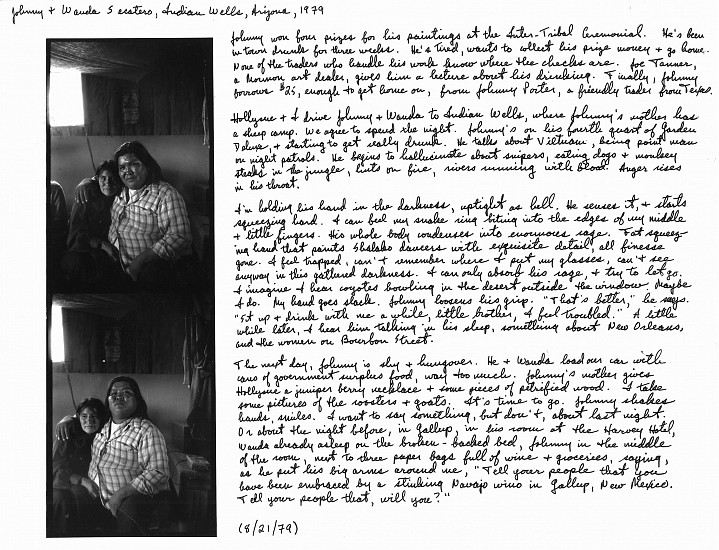 Johnny + Wanda Secatero, Indian Wells, Arizona, 1979
Johnny won four prizes for his paintings at the Inter-Tribal Ceremonial. He's been
in town drunk for three weeks. He's tired, wants to collect his prize money + go home.
None of the traders who handle his work know where the checks are. Joe Tanner,
a Mormon art dealer, gives him a lecture about his drinking. Finally, Johnny
borrows $25, enough to get home on, from Johnny Porter, a friendly trader from Texas.
Hollysue + I drive Johnny + Wanda to Indian Wells, where Johnny's mother has
a sheep camp. We agree to spend the night. Johnny's on his fourth quart of Garden
Deluxe, + starting to get really drunk. He talks about Vietnam, being point man
on night patrols. He begins to hallucinate about snipers, eating dogs + monkey
steaks in the jungle, huts on fire, rivers running with blood. Anger rises
in his throat.
I'm holding his hand in the darkness, uptight as hell. He senses it, + starts
squeezing hard. I can feel my snake ring biting into the edges of my middle
+ little fingers. His whole body condenses into enormous rage. Fat squeez-
ing hand that paints Shalako dancers with exquisite detail, all finesse
gone. I feel trapped, can't remember where I put my glasses, can't see
anyway in this gathered darkness. I can only absorb his rage, + try to let go.
I imagine I hear coyotes howling in the desert outside the window. Maybe
I do. My hand goes slack. Johnny loosens his grip. "That's better," he says.
"Sit up + drink with me a while, little brother, I feel troubled." A little
while later, I hear him talking in his sleep, something about New Orleans,
and the women on Bourbon Street.
The next day, Johnny is shy + hungover. He + Wanda load our car with
cans of government surplus food, way too much. Johnny's mother gives
Hollysue a juniper berry necklace + some pieces of petrified wood. I take
some pictures of the roosters + goats. It's time to go. Johnny shakes
hands, smiles. I want to say something, but don't, about last night.
Or about the night before, in Gallup, in his room at the Harvey Hotel,
Wanda already asleep on the broken-backed bed, Johnny in the middle
of the room, next to three paper bags full of wine + groceries, saying,
as he put his big arms around me, "Tell your people that you
have been embraced by a stinking Navajo wino in Gallup, New Mexico.
Tell your people that, will you?"
(8/21/79)